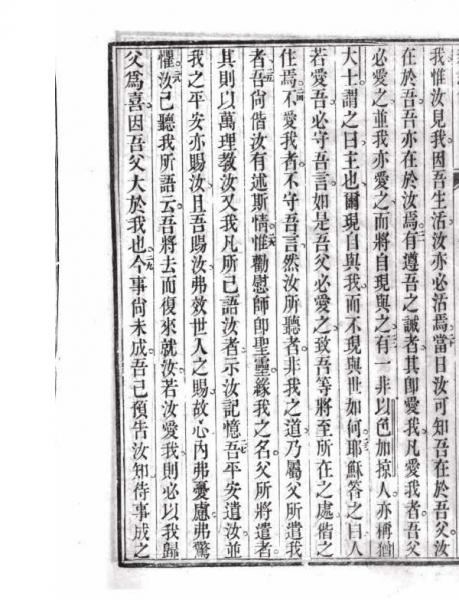 我惟汝見我因吾生活汝亦必活焉當日汝可知吾在於吾父汝
在於吾吾亦在於汝焉有遵吾之誡者其即愛我凡愛我者吾父
必愛之並我亦愛之而將自現與之有一非以色加掠人亦稱猶
大士謂之曰主也爾現自與我而不現與世如何耶穌答之曰人
若愛吾必守吾言如是吾父必愛之致吾等將至所在之處偕之
住焉不愛我者不守吾言然汝所聽者非我之道乃屬父所遣我
者吾尚偕汝有述斯情惟勸慰師即聖靈緣我之名父所將遣者
其則以萬理教汝又我凡所已語汝者示汝記憶吾平安遺汝並
我之平安亦賜汝且吾賜汝弗效世人之賜故心內弗憂慮弗驚
懼汝已聽我所語云吾將去而復來就汝若汝愛我則必以我歸
父為喜因吾父大於我也今事尚未成吾已預告汝知待事成之